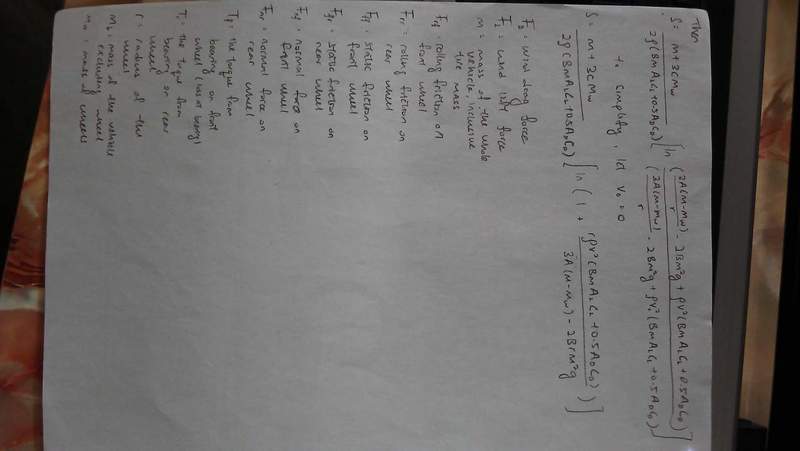 Then
S = m + 3cmw / 2ρ(BmA2CL + 0.5ADCD) [ ln ( 2A(m-mw)/r - 2Bm²g + ρV²(BmA2CL + 0.5ADCD) / 2A(m-mw)/r - 2Bm²g + ρV0²(BmA2CL + 0.5ADCD) ) ]
to simplify, let V0 = 0
S = m + 3cmw / 2ρ(BmA2CL + 0.5ADCD) [ ln ( 1 + rρV²(BmA2CL + 0.5ADCD) / 3A(m-mw) - 2Brm²g ) ]
: wind drag force
: wind lift force
m = mass of the whole
vehicle, inclusive
tire mass
Frf : rolling friction on
front wheel
Frr : rolling friction on
rear wheel
Fff : static friction on
front wheel
: static friction on
rear wheel
: normal force on
front wheel
Fnr : normal force on
rear wheel
Tf : the torque from
bearing on front
wheel (has no bearing)
Tr : the torque from
bearing on rear
wheel
r = radius of the
wheel
: mass of the vehicle
excluding wheel
mw : mass of wheels